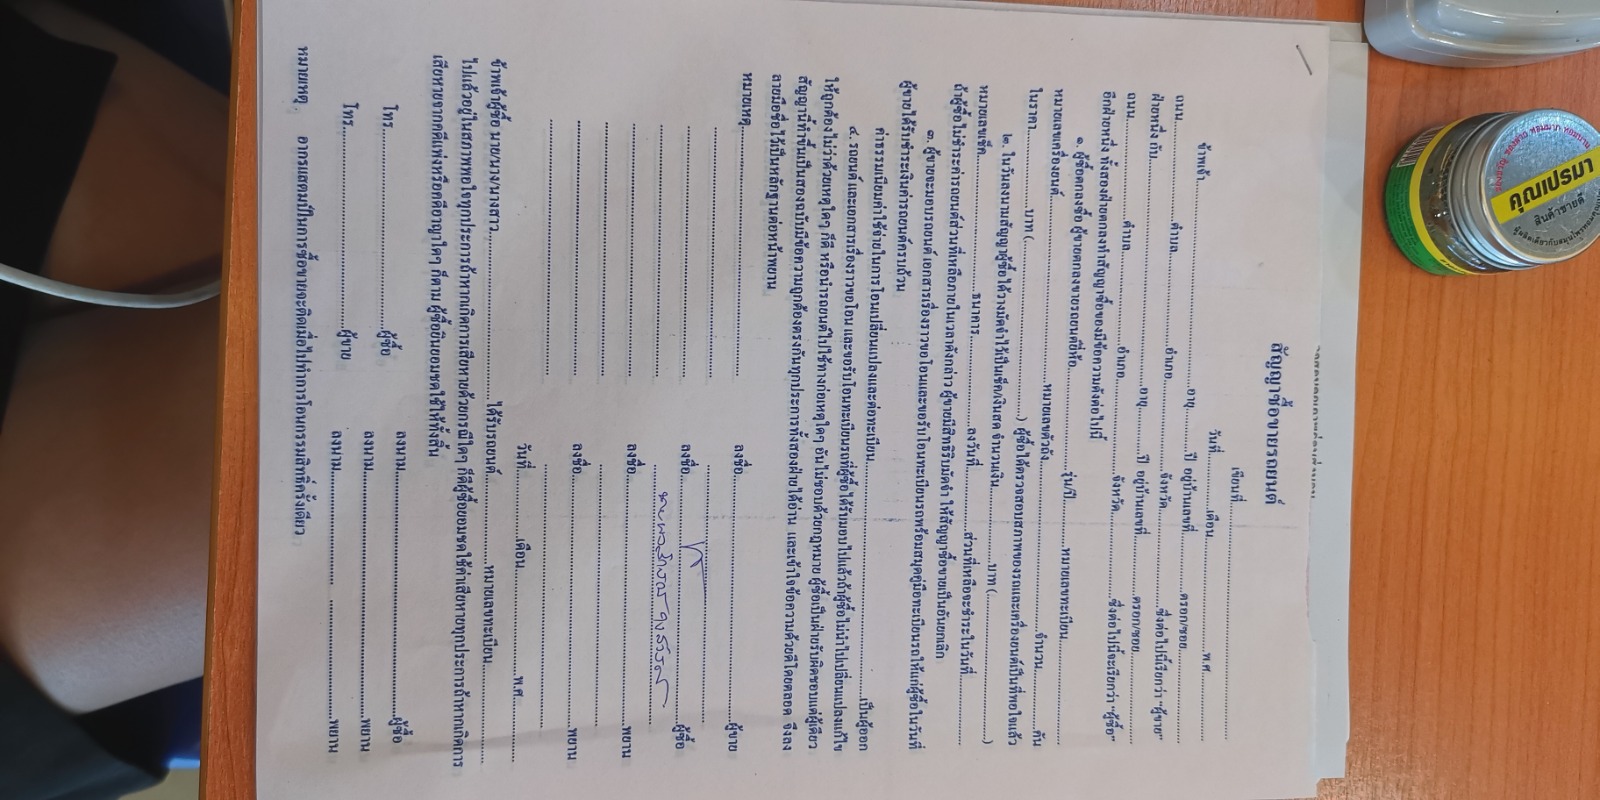 สัญญาซื้อขายรถยนต์
เขียนที่..............................
วันที่................เดือน..............................พ.ศ................
ข้าพเจ้า..............................อายุ..............ปี อยู่บ้านเลขที่..............ตรอก/ซอย..............
ถนน................ตำบล................อำเภอ................จังหวัด................ซึ่งต่อไปนี้เรียกว่า "ผู้ขาย"
ฝ่ายหนึ่ง กับ..............................อายุ..............ปี อยู่บ้านเลขที่..............ตรอก/ซอย..............
ถนน................ตำบล................อำเภอ................จังหวัด................ซึ่งต่อไปนี้จะเรียกว่า "ผู้ซื้อ"
อีกฝ่ายหนึ่ง ทั้งสองฝ่ายตกลงทำสัญญาซื้อของมีข้อความดังต่อไปนี้
๑. ผู้ซื้อตกลงซื้อ ผู้ขายตกลงขายรถยนต์ยี่ห้อ................รุ่น/ปี................หมายเลขทะเบียน................
หมายเลขเครื่องยนต์..............................หมายเลขตัวถัง..............................จำนวน..............คัน
ในราคา................บาท (..............................) ผู้ซื้อได้ตรวจสอบสภาพของรถและเครื่องยนต์เป็นที่พอใจแล้ว
๒. ในวันลงนามสัญญาผู้ซื้อได้วางมัดจำไว้เป็นเช็ค/เงินสด จำนวนเงิน................บาท (..............................)
หมายเลขเช็ค................ธนาคาร................ลงวันที่................ส่วนที่เหลือจะชำระในวันที่................
ถ้าผู้ซื้อไม่ชำระค่ารถยนต์ส่วนที่เหลือภายในเวลาดังกล่าว ผู้ขายมีสิทธิริบมัดจำ ให้สัญญาซื้อขายเป็นอันยกเลิก
๓. ผู้ขายจะมอบรถยนต์ เอกสารเรื่องราวขอโอนและขอรับโอนทะเบียนรถพร้อมสมุดคู่มือทะเบียนรถให้แก่ผู้ซื้อในวันที่
ผู้ขายได้รับชำระเงินค่ารถยนต์ครบถ้วน
ค่าธรรมเนียมค่าใช้จ่ายในการโอนเปลี่ยนแปลงและต่อทะเบียน..............................เป็นผู้ออก
๔. รถยนต์ และเอกสารเรื่องราวขอโอน และขอรับโอนทะเบียนรถที่ผู้ซื้อได้รับมอบไปแล้วถ้าผู้ซื้อไม่นำไปเปลี่ยนแปลงแก้ไข
ให้ถูกต้องไม่ว่าด้วยเหตุใดๆ ก็ดี หรือนำรถยนต์ไปใช้ทางก่อเหตุใดๆ อันไม่ชอบด้วยกฎหมาย ผู้ซื้อเป็นฝ่ายรับผิดชอบแต่ผู้เดียว
สัญญานี้ทำขึ้นเป็นสองฉบับมีข้อความถูกต้องตรงกันทุกประการทั้งสองฝ่ายได้อ่าน และเข้าใจข้อความด้วยดีโดยตลอด จึงลง
ลายมือชื่อไว้เป็นหลักฐานต่อหน้าพยาน
หมายเหตุ..............................ลงชื่อ..............................ผู้ขาย
ลงชื่อ..............................ผู้ซื้อ
ลงชื่อ..............................พยาน
ลงชื่อ..............................พยาน
วันที่................เดือน................พ.ศ................
ข้าพเจ้าผู้ซื้อ นาย/นาง/นางสาว..............................ได้รับรถยนต์................หมายเลขทะเบียน................
ไปแล้วอยู่ในสภาพพอใจทุกประการถ้าหากเกิดการเสียหายด้วยกรณีใดๆ ก็ดีผู้ซื้อยอมชดใช้ค่าเสียหายทุกประการถ้าหากเกิดการ
เสียหายจากคดีแพ่งหรือคดีอาญาใดๆ ก็ตาม ผู้ซื้อยินยอมชดใช้ให้ทั้งสิ้น
ลงนาม..............................ผู้ซื้อ
โทร..............................ผู้ซื้อ ลงนาม..............................พยาน
โทร..............................ผู้ขาย ลงนาม..............................พยาน
หมายเหตุ อากรแสตมป์ในการซื้อขายจะติดเมื่อไปทำการโอนกรรมสิทธิ์ครั้งเดียว
คุณเปรมา
สินค้าขายดี